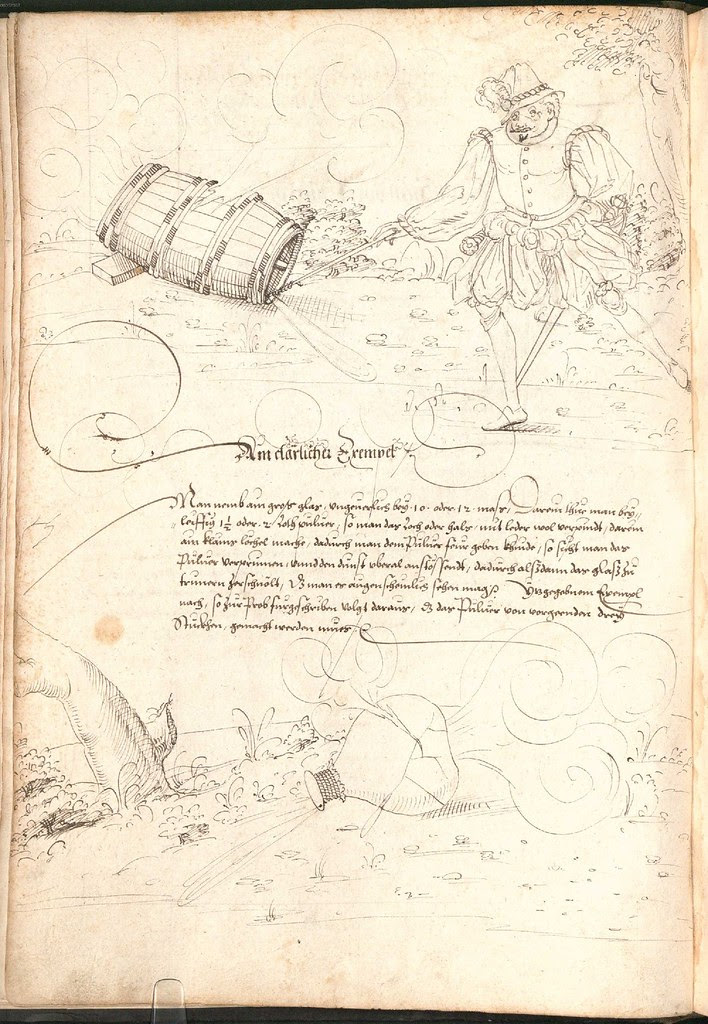 Ain clärlicher Exempel
Man nemb ain gross glas, ungeuerlich bey .10. oder .12. mass, Darein thue man bey
leiffig 1½ oder .2. loth puluer, so man das loch oder hals, mit leder wol verpindt, darein
ain klains lochel mache, dadurch man dem Puluer feur geben khinde, so sicht man das
Puluer verprinnen, unnd den dunst uberal anstossendt, dadurch alssdann das glass zu
trimern zerschnölt, Wie man es augenscheinlich sehen mag. Us gegebnem Exempl
nach, so zur Prob furgeschriben volgt daraus, das Puluer von vorgeenden drey
Stuckhen, gemacht werden mues